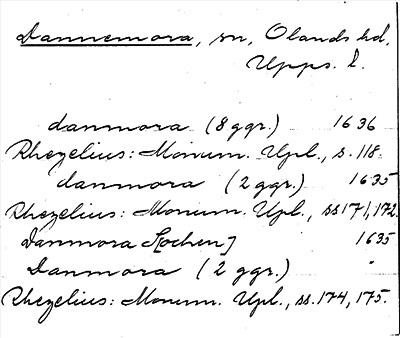 Dannemora, sn, Olands hd,
Upps. l.
danmora (8 ggr.) 1636
Rhezelius: Monum. Upl., s. 118.
danmora (2 ggr.) 1635
Rhezelius: Monum. Upl., ss 171, 172.
Danmora Sochen] 1635
Danmora (2 ggr.) "
Rhezelius: Monum. Upl., ss. 174, 175.